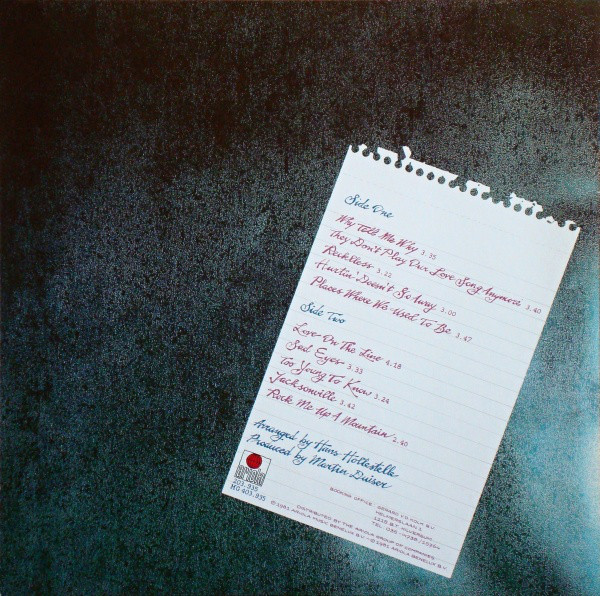 Side One
Why Tell Me Why 3.35
They Don't Play Our Love Song Anymore 3.40
Reckless 3.22
Hurtin' Doesn't Go Away 3.00
Places Where We Used To Be 3.47
Side Two
Love On The Line 4.18
Sad Eyes 3.33
Too Young To Know 3.24
Jacksonville 3.42
Rock Me Up A Mountain 2.40
Arranged by Hans Hollestelle
Produced by Martin Duiser
ariola
203.935
MC 403.935
BOOKING OFFICE:
HILVERSUM
TEL. 035 -
DISTRIBUTED BY THE ARIOLA GROUP OF COMPANIES
© 1981 ARIOLA BENELUX B.V.